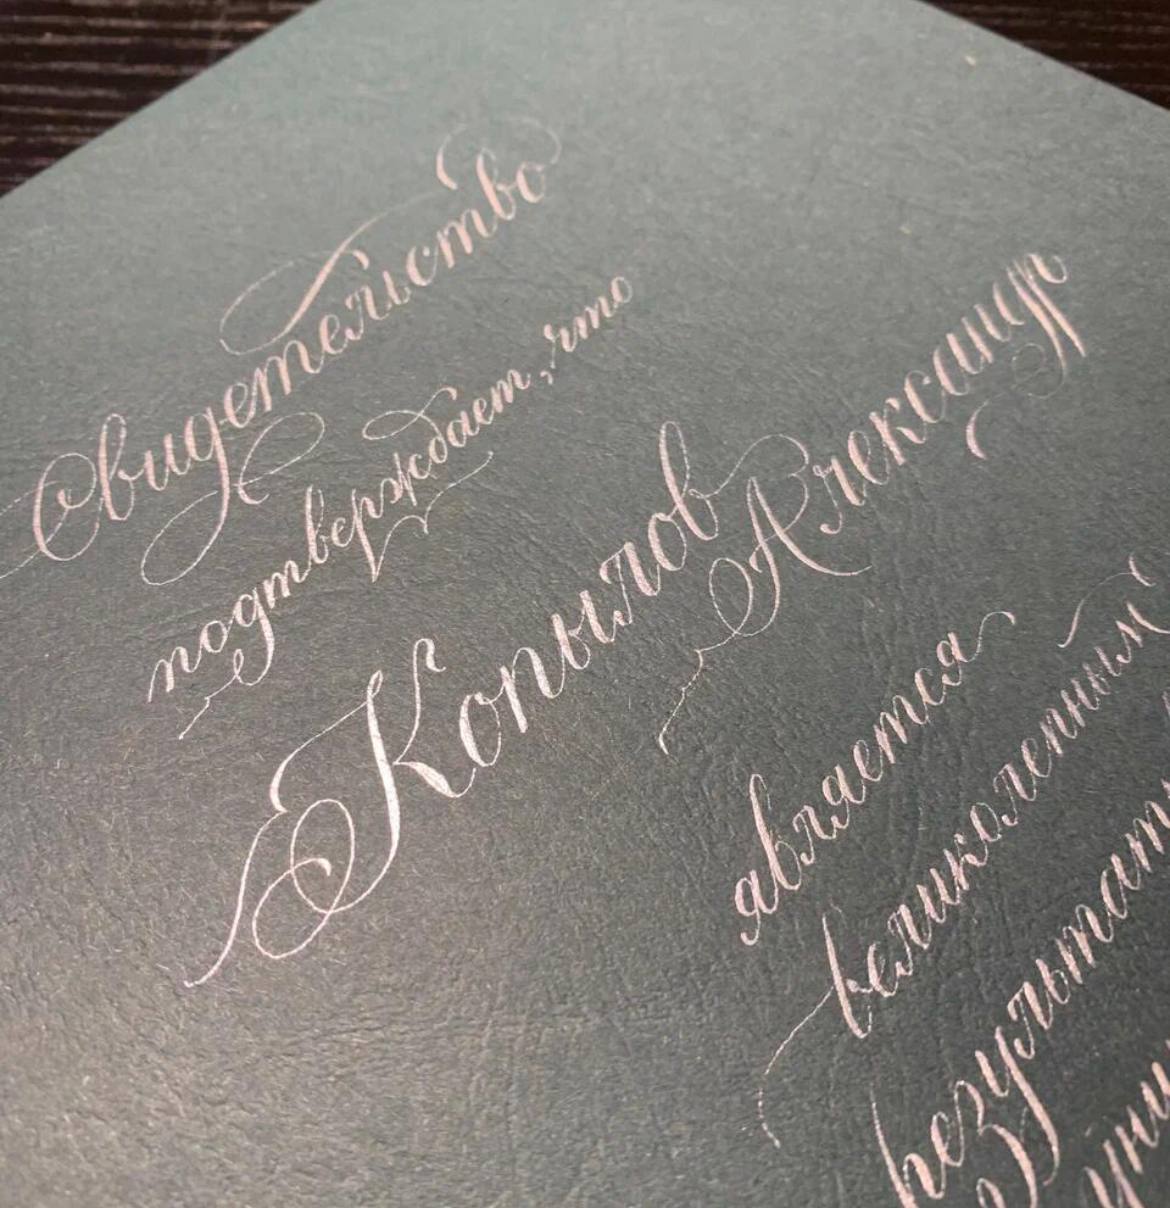 Свидетельство
подтверждает, что
Копылов Александр
является
великолепным